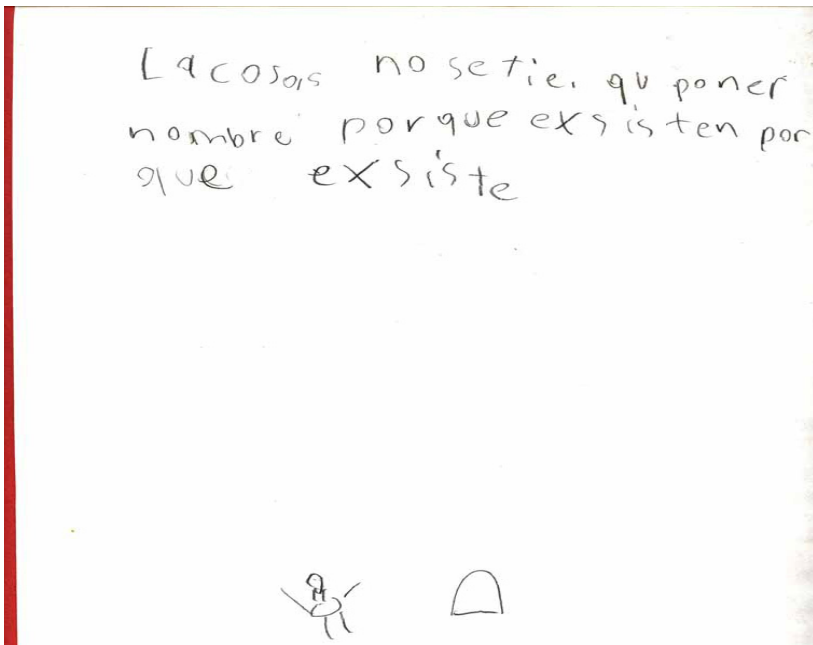 Lacosas no setie. qu poner
nombre porque exsisten por
que exsiste